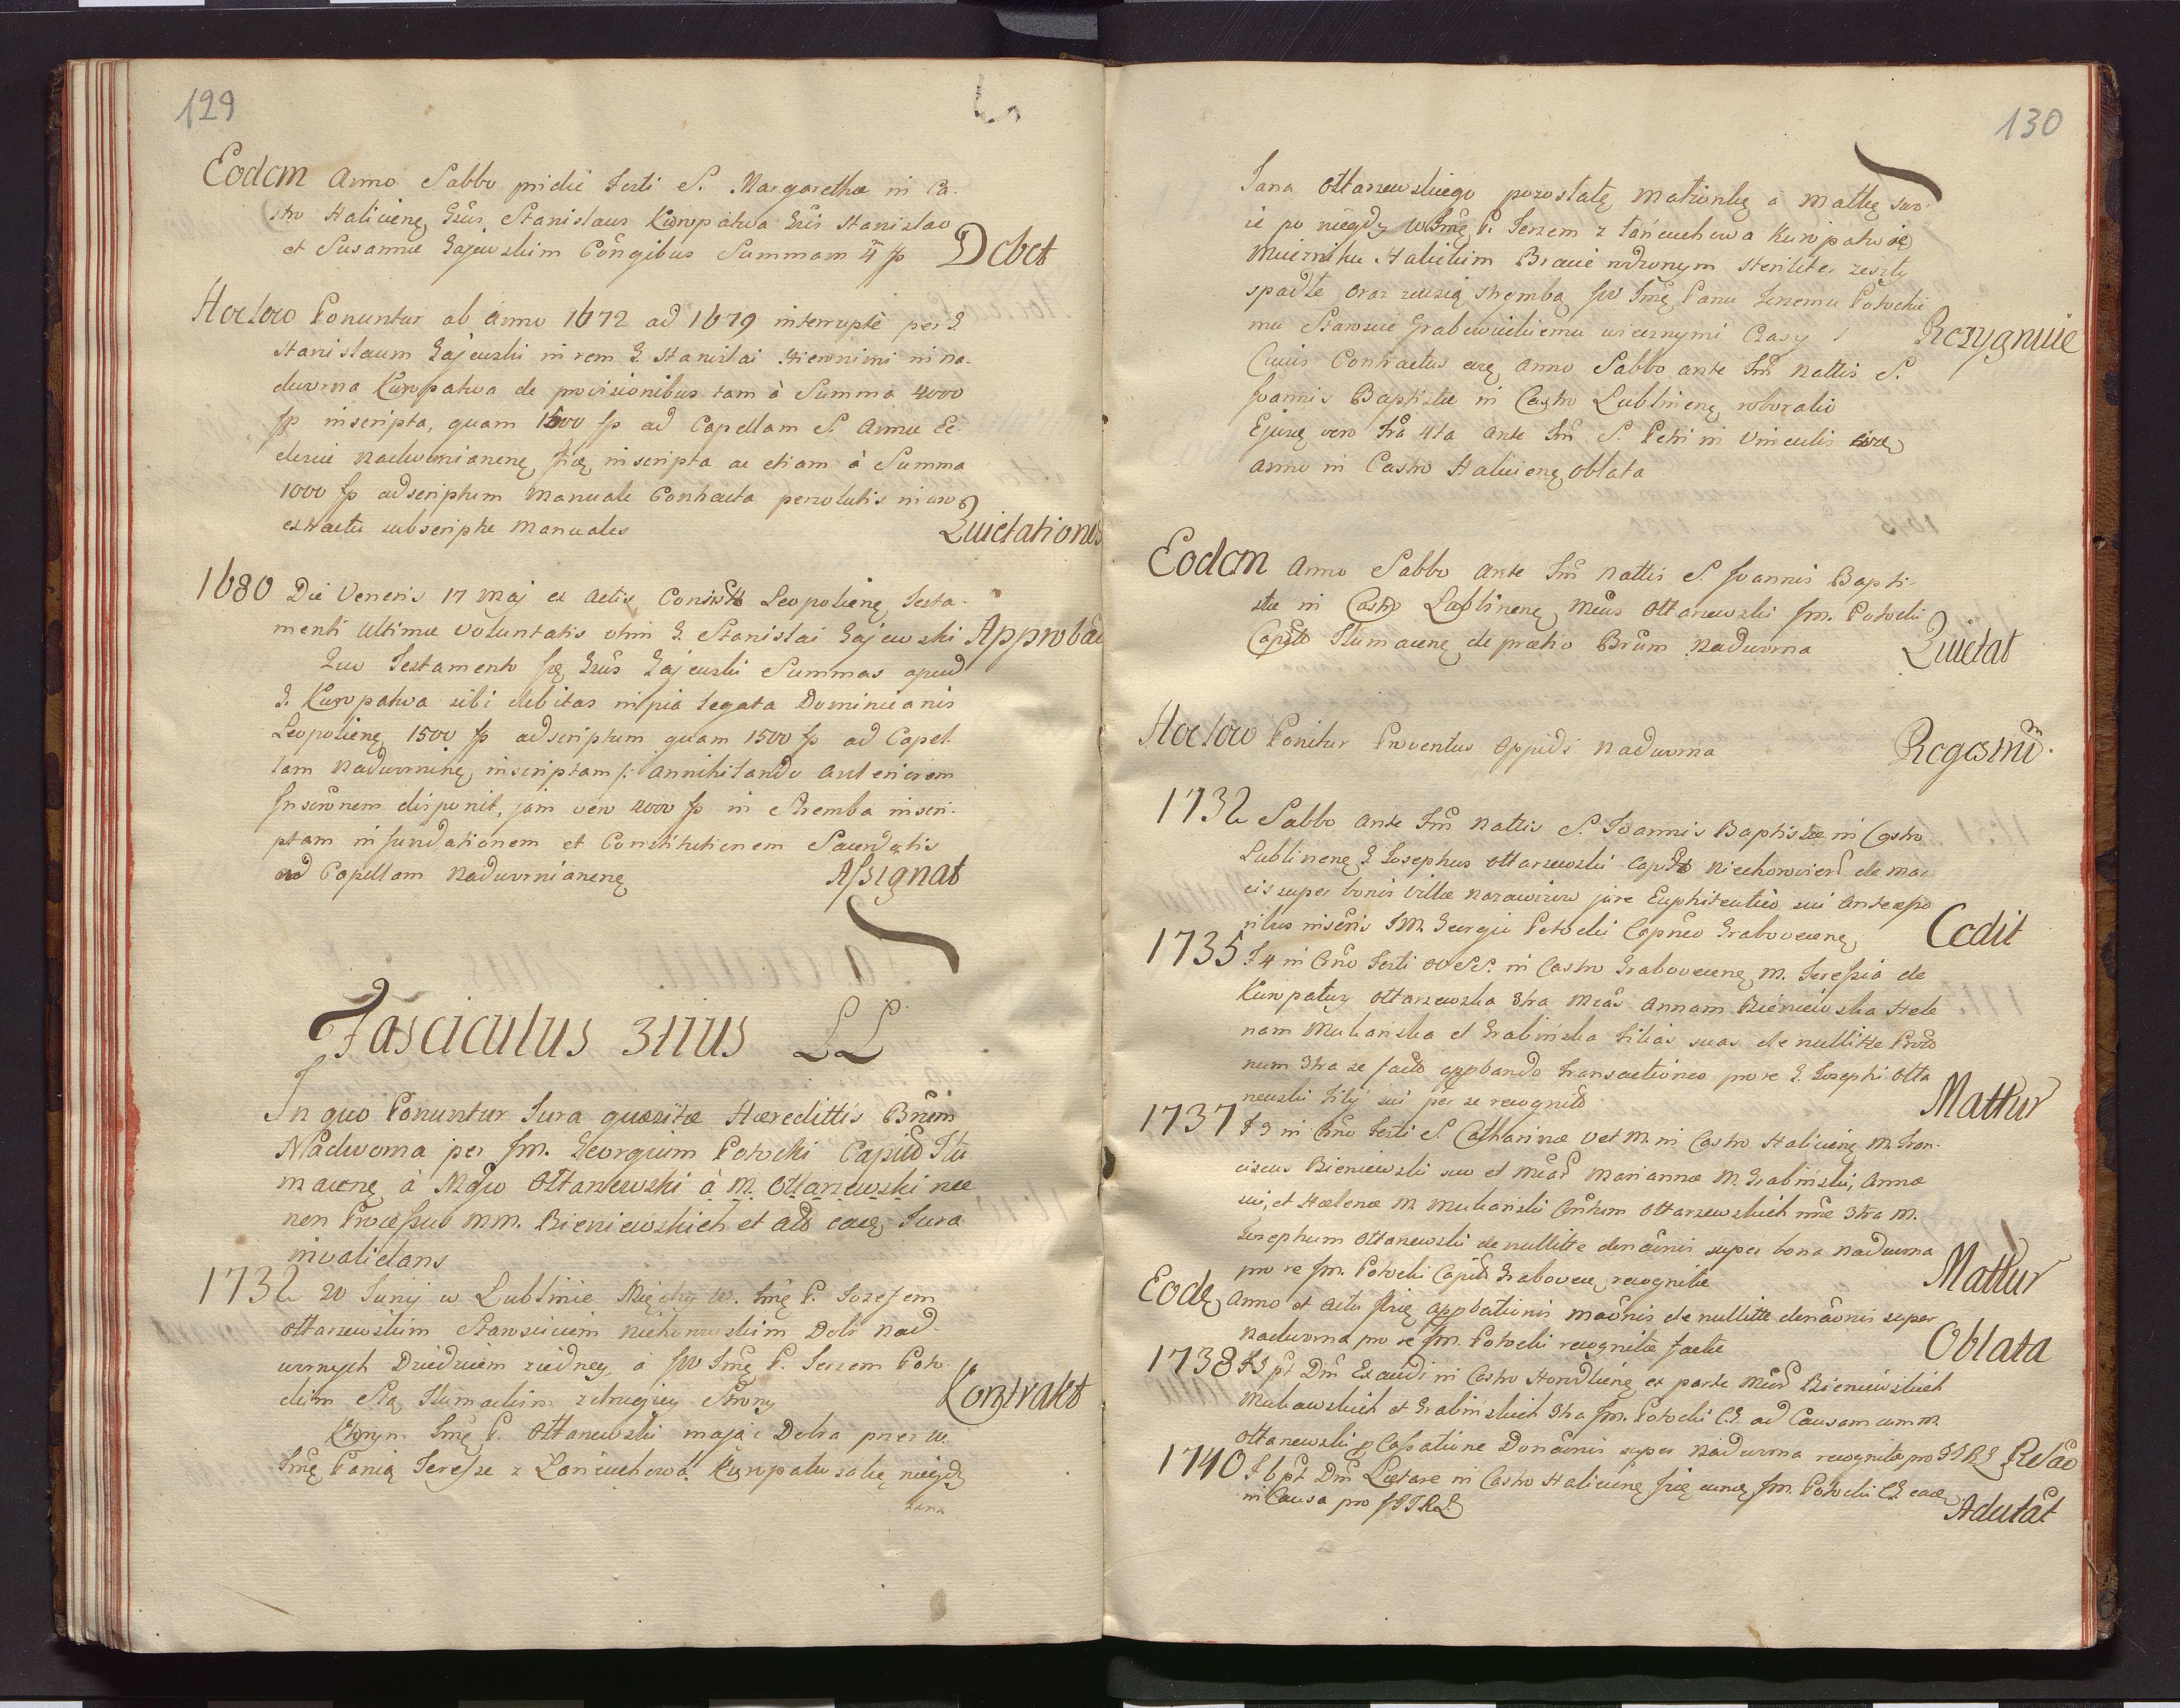 129
Eodem Anno Sabbo pridie Festi S. Margarethæ in Ca-
stro Haliciensẹ Gsus Stanislaus Kuropatwa Gsis Stanislao
et Susannæ Gajewskim Congibus Summam 4 m fp Debet
Hoc loco Ponuntur ab Anno 1672 ad 1679 interruptè per G
Stanislaum Gajewski in rem G. Stanislai Hieronimi in na-
dworna Kuropatwa de provisionibus tam à Summa 4000
fp inscripta, quam 1500 fp ad Capellam S. Annæ Ec-
clesiæ Nadwornianenẹ inscripta ac etiam à Summa
1000 fp adscriptum Manuale Contracta persolutis
extractu subscriptæ Manuales Quietationes
1680 Die Veneris 17 Maj ex Actis Leopolienẹ Testa-
menti Ultimæ Voluntatis olim G. Stanislai Gajewski
Quo Testamento Gsus Gajewski Summas apud
G. Kuropatwa sibi debitas in pia Legata Dominicanis
Leopolienẹ 1500 fp adscriptum quam 1500 fp ad Capel-
lam Nadworninẹ inscriptam /: Annihilando Anteriorem
Inscronem disponit, jam vero 4000 fp in Stremba inscri-
ptam in fundationem et Constitutionem Sacerdotis
ad Capellam Nadwornianenẹ Assignat
Fasciculus 3tius LL
In quo Ponuntur Jura quæsitæ Hæredittis Bnrum
Nadworna per Jm. Georgium Potocki Capito Tłu
macenẹ à Mgco Ottarzewski à M. Ottarzewski nec
non Processus MM. Bieniewskich et eacẹ Jura
invalidans
1732 20 Junij w Lublinie Między W. Jmẹ P. Jozefem
Ottarzewskim Starosciciem Niehorowskim Dobr Nad-
wornych Dziedzicem ziedney, a JW Jmẹ P. Jerzem Poto
ckim Stą Tłumackim zdrugiey Strony Kontrakt
Ktorym Jmẹ P. Ottarzewski maiąc Dobra przez W.
Jmẹ Panią Teresse z Łanćuchowa Kuropatwzakẹ niegdy
Jana
130
Jana Ottarzewskiego pozostałę matronkę a matkę swo-
ie po niegdy W Jmẹ P. Jerzem z Łanćuchowa Kuropatwie
Mieczniku Halickim Bracie rodzonym steriliter zeszły
spadłe oraz wsią Strymbą JW Jmẹ Panu Jerzemu Potockie
mu Staroscie Grabowieckiemu wiecznymi Czasy Rezygnuie
Cuius Contractus eoẹ Anno Sabbo ante Fm Nattis S.
Joannis Baptistæ in Castro Lublinenẹ roboratio
Ejusẹ vero Fra 4ta Ante Fm S. Petri in Vinculis eoẹ
anno in Castro Halicienẹ Oblata
Eodem Anno Sabbo Ante Fm Nattis S. Joannis Bapti-
stæ in Castro Lublinenẹ Mcus Ottarzewski Jm. Potocki
Capito Tłumacenẹ de prætio Bnrum Nadworna Quietat
Hoc loco Ponitur Proventus Oppidi Nadworna Regestrum
1732 Sabbo ante Fm Nattis S. Joannis Baptistæ in Castro
Lublinenẹ G. Josephus Ottarzewski de
super bonis Villæ jure Emphiteutico sui
Jm. Georgio Potocki Capneo Grabovecenẹ Cedit
1735 F 4 in Crno Festi OO SS. in Castro Grabovecenẹ M. Teressia de
Kuropatwy Ottarzewska 3tra Mcas Annam Bieniewska Hele
nam Muchańska et Grabińska Filias suas de nullitte
num 3tra se facto appbando Transactiones pro re G. Josephi Otta
rzewski Filij sui per se recognitas Mattur
1737 F 3 in Crno Festi S. Catharinæ V et M. in Castro Halicienẹ M. Fran-
ciscus Bieniewski suo et Mcar Mariannæ M. Grabinski, Annæ
sui, et Hælenæ M Muchanski Ottarzewskich nne 3tra M.
Josephum Ottarzewski de nullitte donaonis super bona Nadworna
pro re Jm. Potocki Capito Grabovecẹ recognitæ Mattur
Eodẹ Anno et Actu appbationis de nullitte donaonis super
Nadworna pro re Jm. Potocki recognitæ factæ Oblata
1738 F 3 pt Dm Exaudi in Castro ex parte Mcor Bieniewskich
Muchawskich et Grabinskich 3tra Jm. Potocki C.G. ad Causam cum M.
Ottarzewski Cassatione Donaonis super Nadworna recognitæ pro Relao
1740 F 6 pt Dm Lætare in Castro Halicienẹ Jm. Potocki C.G.
in Causa pro Adcitat